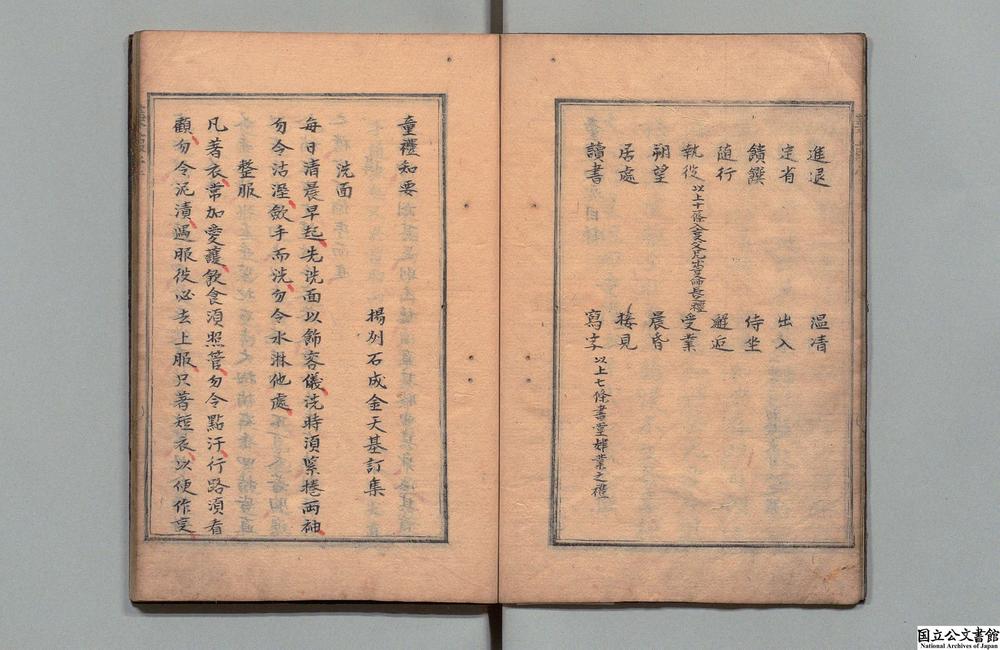 進退 温凊
定省 出入
饋饌 侍坐
随行 邂逅
執役 受業
朔望 晨昏
居處 接見
讀書 寫字 以上七條書堂肄業之禮
童禮知要
揚州石成金天基訂集
洗面
每日清晨早起先洗面以飾容儀洗時須緊捲兩袖
勿令沾溼斂手而洗勿令水淋他處
整服
凡著衣常加愛護飲食須照管勿令點汙行路須看
顧勿令泥漬遇服役必去上服只著短衣以便作事
国立公文書館
National Archives of Japan